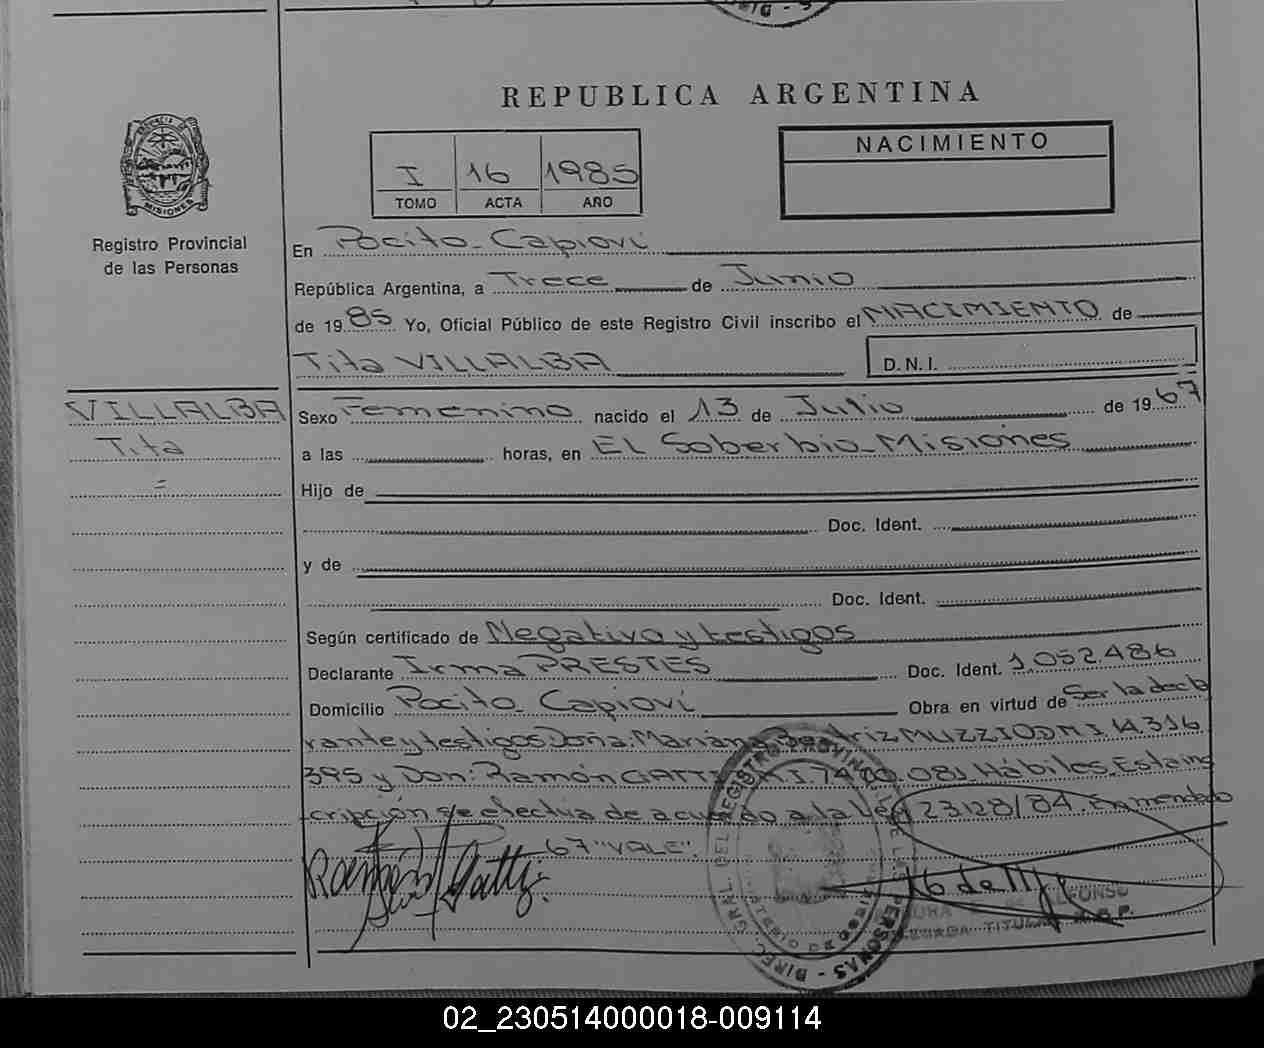 REPUBLICA ARGENTINA
MISIONES
Registro Provincial
de las Personas
I 16 1985
TOMO ACTA AÑO
NACIMIENTO
En Pocito - Capioví
República Argentina, a Trece de Junio
de 1985 Yo, Oficial Público de este Registro Civil inscribo el NACIMIENTO de
Tita VILLALBA D.N.I.
VILLALBA
Tita
=
Sexo Femenino nacido el 13 de Julio de 1967
a las horas, en EL Soberbio - Misiones
Hijo de
Doc. Ident.
y de
Doc. Ident.
Según certificado de Negativo y testigos
Declarante Irma PRESTES Doc. Ident. 1.052.486
Domicilio Pocito Capioví Obra en virtud de Ser la decla
rante y testigos Doña: Mariana Beatriz MUZZIO DNI 14.316
395 y Don: Ramón GATTI 081. Hábiles. Esta ins
cripción se efectúa de acuerdo a la Ley 23128/84. Enmendado
67 "VALE".
Ramón Gatti
DIREC. GRAL. DEL REGISTRO PROVINCIAL DE LAS PERSONAS
ALFONSO
TITULAR
02_230514000018-009114